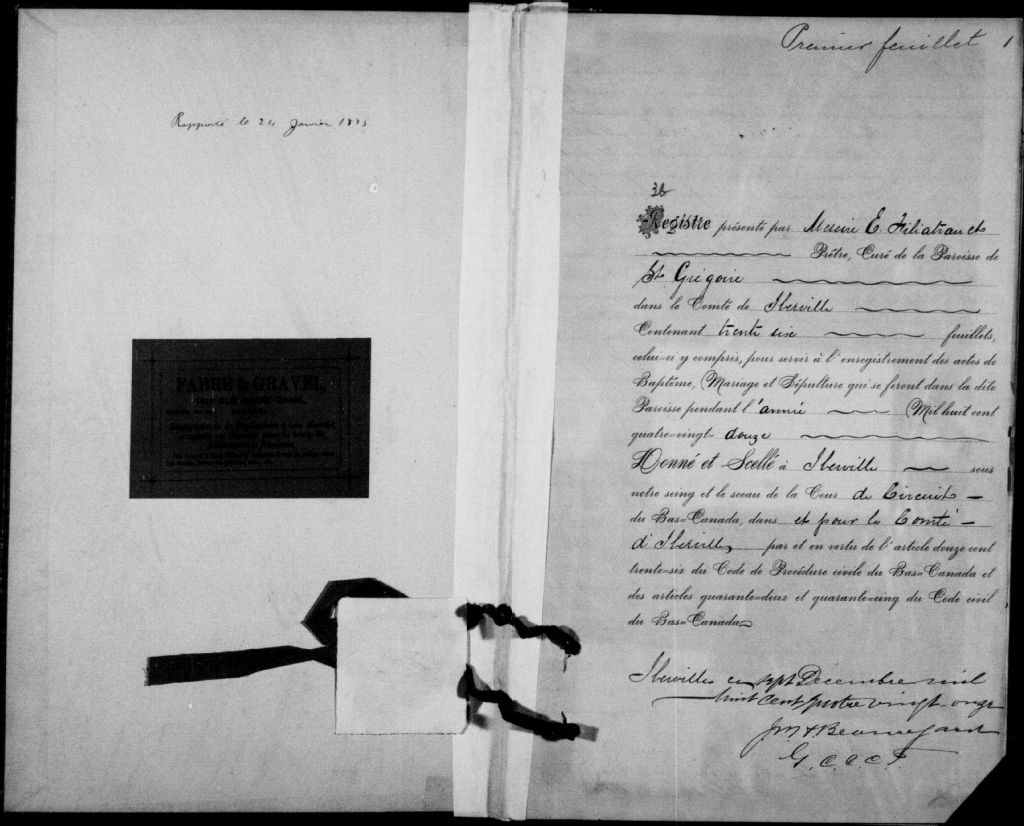 Rapporté le 24 Janvier 1893
FABRE & GRAVEL
Premier feuillet 1
36
Registre présenté par Messire E. Filiatrault
Prêtre, Curé de la Paroisse de
St Grégoire
dans le Comté de Iberville
Contenant trente six feuillets,
celui-ci y compris, pour servir à l'enregistrement des actes de
Baptême, Mariage et Sépulture qui se feront dans la dite
Paroisse pendant l'année Mil huit cent
quatre-vingt douze
Donné et Scellé à Iberville sous
notre seing et le sceau de la Cour de Circuit
du Bas=Canada, dans et pour le Comté
d'Iberville, par et en vertu de l'article douze cent
trente=six du Code de Procédure civile du Bas=Canada et
des articles quarante=deux et quarante=cinq du Code civil
du Bas=Canada
Iberville ce sept Décembre mil
huit cent quatre vingt onze
Beauregard
G. C. C. C. I.